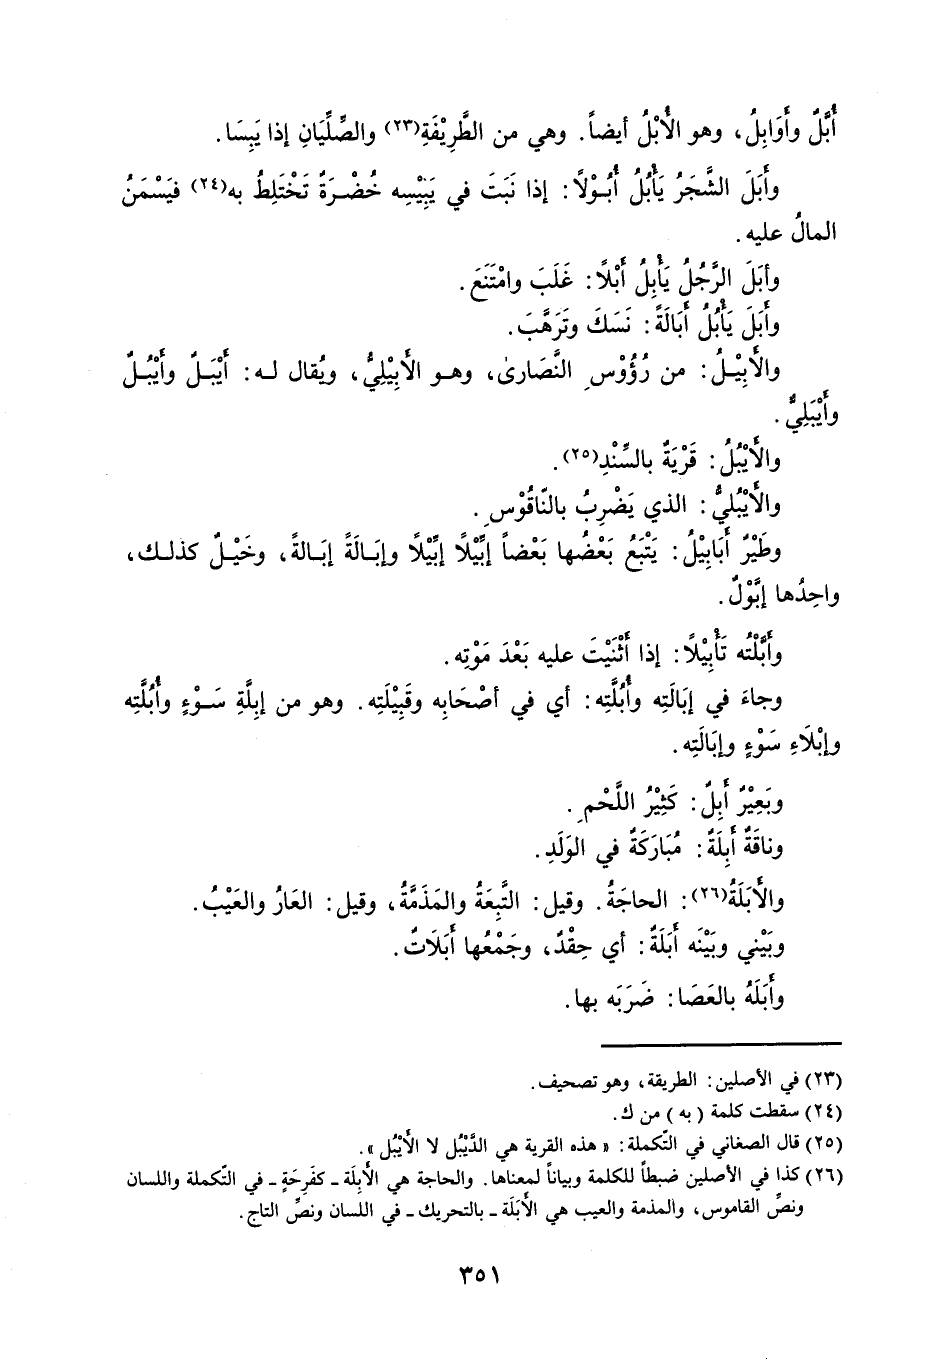 أُبَّلٌ وأَوَابِلُ، وهو الأُبْلُ أيضاً. وهي من الطَّرِيْفَةِ(٢٣) والصِّلِّيَانِ إذا يَبِسَا.
وأَبَلَ الشَّجَرُ يَأْبُلُ أُبُوْلًا: إذا نَبَتَ في يَبِيْسِه خُضْرَةٌ تَخْتَلِطُ به(٢٤) فيَسْمَنُ
المالُ عليه.
وأَبَلَ الرَّجُلُ يَأْبِلُ أَبْلًا: غَلَبَ وامْتَنَعَ.
وأَبَلَ يَأْبُلُ أَبَالَةً: نَسَكَ وتَرَهَّبَ.
والأَبِيْلُ: من رُؤُوْسِ النَّصَارىٰ، وهو الأَبِيْلِيُّ، ويُقال له: أَيْبَلٌ وأَيْبُلٌ
وأَيْبَلِيٌّ.
والأَيْبُلُ: قَرْيَةٌ بالسِّنْدِ(٢٥).
والأَيْبُلِيُّ: الذي يَضْرِبُ بالنّاقُوْسِ.
وطَيْرٌ أَبَابِيْلُ: يَتْبَعُ بَعْضُها بَعْضاً إبِّيْلًا إبِّيْلًا وإبَالَةً إبَالةً، وخَيْلٌ كذلك،
واحِدُها إبَّوْلٌ.
وأَبَّلْتُه تَأْبِيْلًا: إذا أَثْنَيْتَ عليه بَعْدَ مَوْتِه.
وجاءَ في إبَالَتِه وأُبُلَّتِه: أي في أصْحَابِه وقَبِيْلَتِه. وهو من إبِلَّةِ سَوْءٍ وأُبُلَّتِه
وإبْلَاءِ سَوْءٍ وإبَالَتِه.
وبَعِيْرٌ أَبِلٌ: كَثِيْرُ اللَّحْمِ.
وناقَةٌ أَبِلَةٌ: مُبَارَكَةٌ في الوَلَدِ.
والأَبَلَةُ(٢٦): الحاجَةُ. وقيل: التَّبِعَةُ والمَذَمَّةُ، وقيل: العَارُ والعَيْبُ.
وبَيْني وبَيْنَه أَبَلَةٌ: أي حِقْدٌ، وجَمْعُها أَبَلَاتٌ.
وأَبَلَهُ بالعَصَا: ضَرَبَه بها.
(٢٣) في الأصلين: الطريقة، وهو تصحيف.
(٢٤) سقطت كلمة (به) من ك.
(٢٥) قال الصغاني في التّكملة: «هذه القرية هي الدَّيْبُل لا الأَيْبُل».
(٢٦) كذا في الأصلين ضبطاً للكلمة وبياناً لمعناها. والحاجة هي الأَبِلَة ـ كفَرِحَةٍ ـ في التّكملة واللسان
ونصِّ القاموس، والمذمة والعيب هي الأَبَلَة ـ بالتحريك ـ في اللسان ونصِّ التاج.
٣٥١